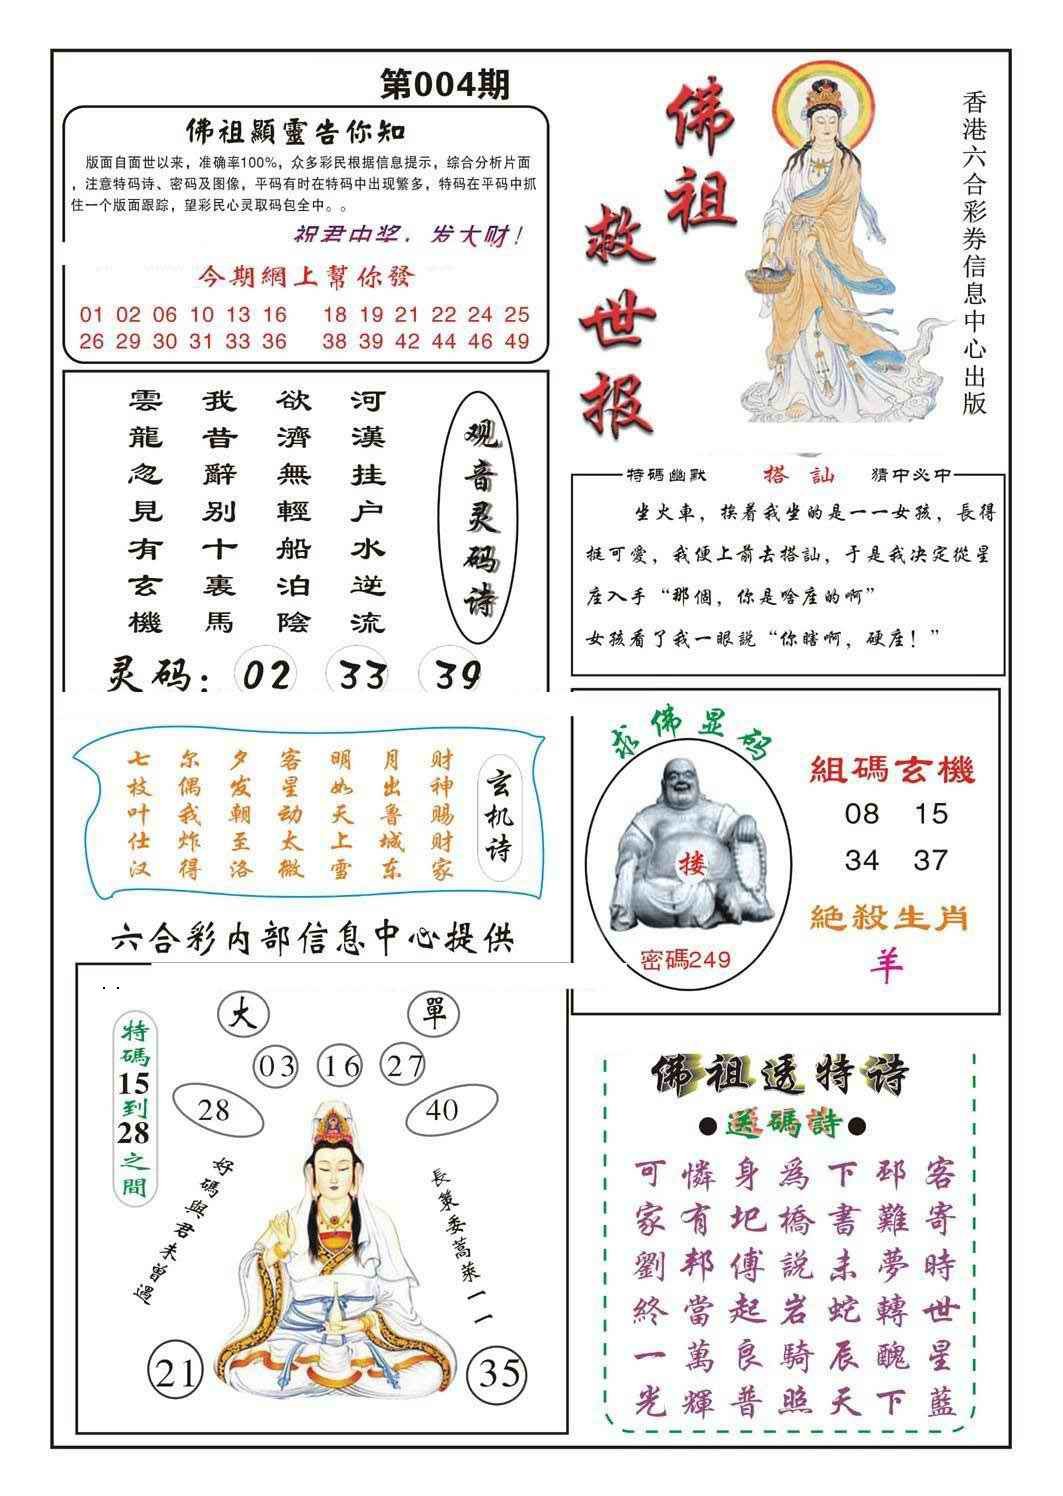 第004期
佛祖顯靈告你知
版面自面世以来，准确率100%，众多彩民根据信息提示，综合分析片面
，注意特码诗、密码及图像，平码有时在特码中出现繁多，特码在平码中抓
住一个版面跟踪，望彩民心灵取码包全中。。
祝君中奖，发大财！
今期網上幫你發
01 02 06 10 13 16 18 19 21 22 24 25
26 29 30 31 33 36 38 39 42 44 46 49
佛祖
救世报
香港六合彩券信息中心出版
观音灵码诗
河漢挂户水逆流
欲濟無輕船泊陰
我昔辭别十裏馬
雲龍忽見有玄機
灵码：02 33 39
特碼幽默 搭訕 猜中必中
坐火車，挨着我坐的是一一女孩，長得
挺可愛，我便上前去搭訕，于是我决定從星
座入手“那個，你是啥座的啊”
女孩看了我一眼説“你瞎啊，硬座！”
玄机诗
财神赐财家
月出鲁城东
明如天上雪
客星动太微
夕发朝至洛
尔偶我炸得
七枝叶仕汉
求佛显码
搂
密碼249
組碼玄機
08 15
34 37
絶殺生肖
羊
六合彩内部信息中心提供
特碼15到28之間
大 單
03 16 27
28 40
好碼與君未曾遇
長策委蒿萊一一
21 35
佛祖透特诗
●送碼詩●
可憐身爲下邳客
家有圯橋書難寄
劉邦傅説未夢時
終當起岩蛇轉世
一萬良騎辰醜星
光輝普照天下藍